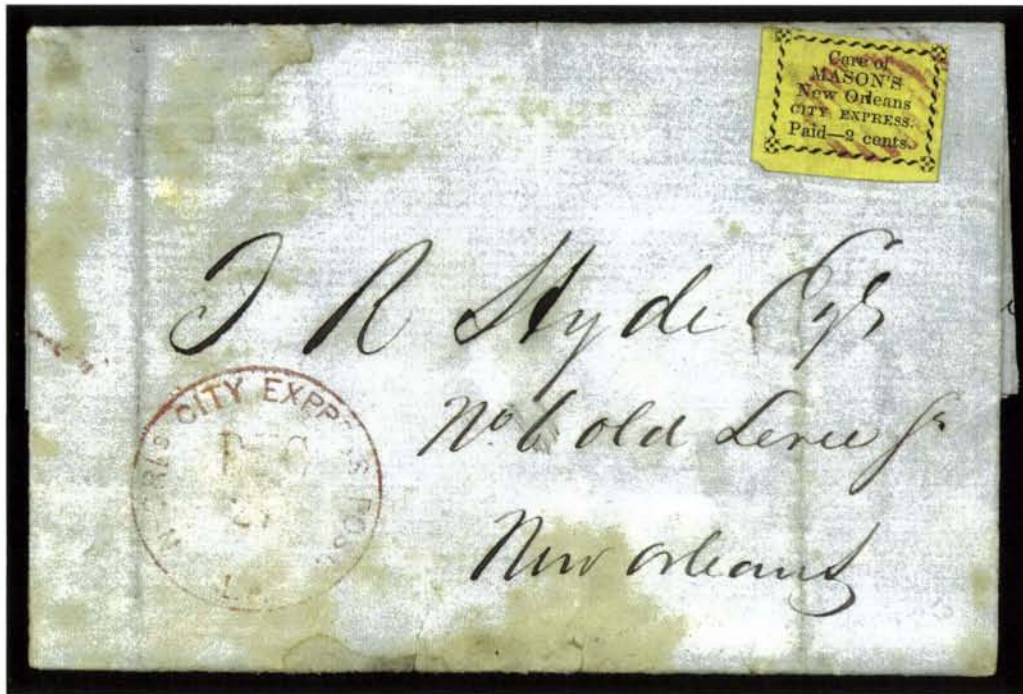 Care of
MASON'S
New Orleans
CITY EXPRESS.
Paid—2 cents.
J R Hyde Esqr
No 6 old Levee St
New Orleans
CITY EXPRESS POST
DEC
LA